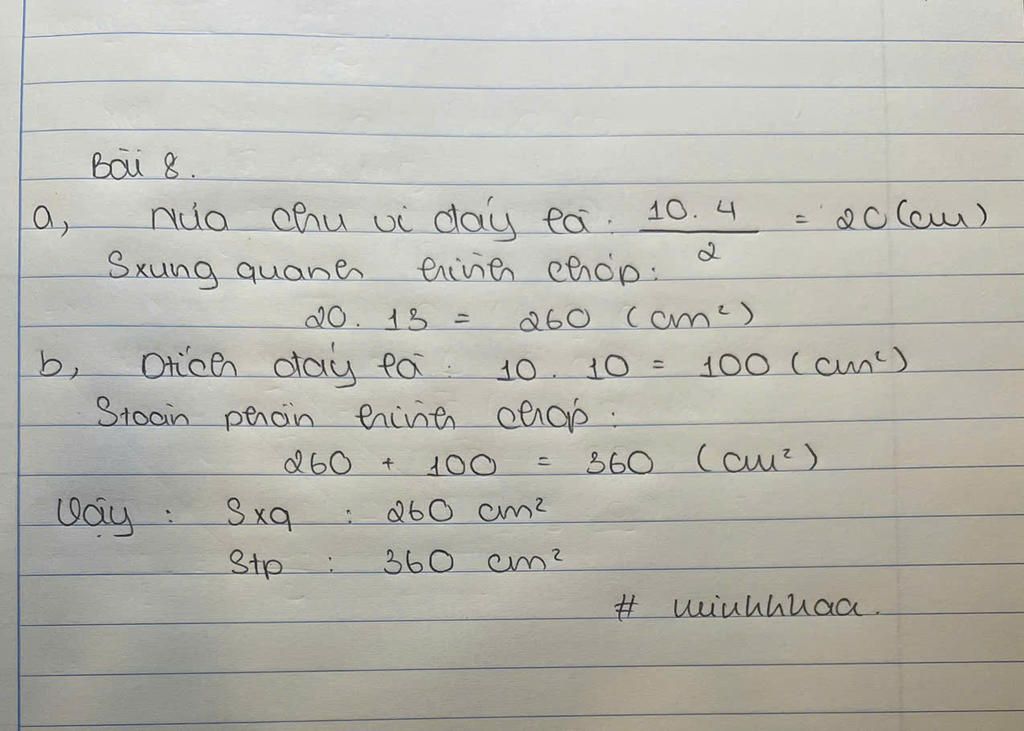 Bài 8.
a, Nửa chu vi đáy là: 10.4/2 = 20 (cm)
Sxung quanh hình chóp:
20. 13 = 260 (cm²)
b, Dtích đáy là: 10. 10 = 100 (cm²)
Stoàn phần hình chóp:
260 + 100 = 360 (cm²)
Vậy: Sxq: 260 cm²
Stp: 360 cm²
# minhhhaa.